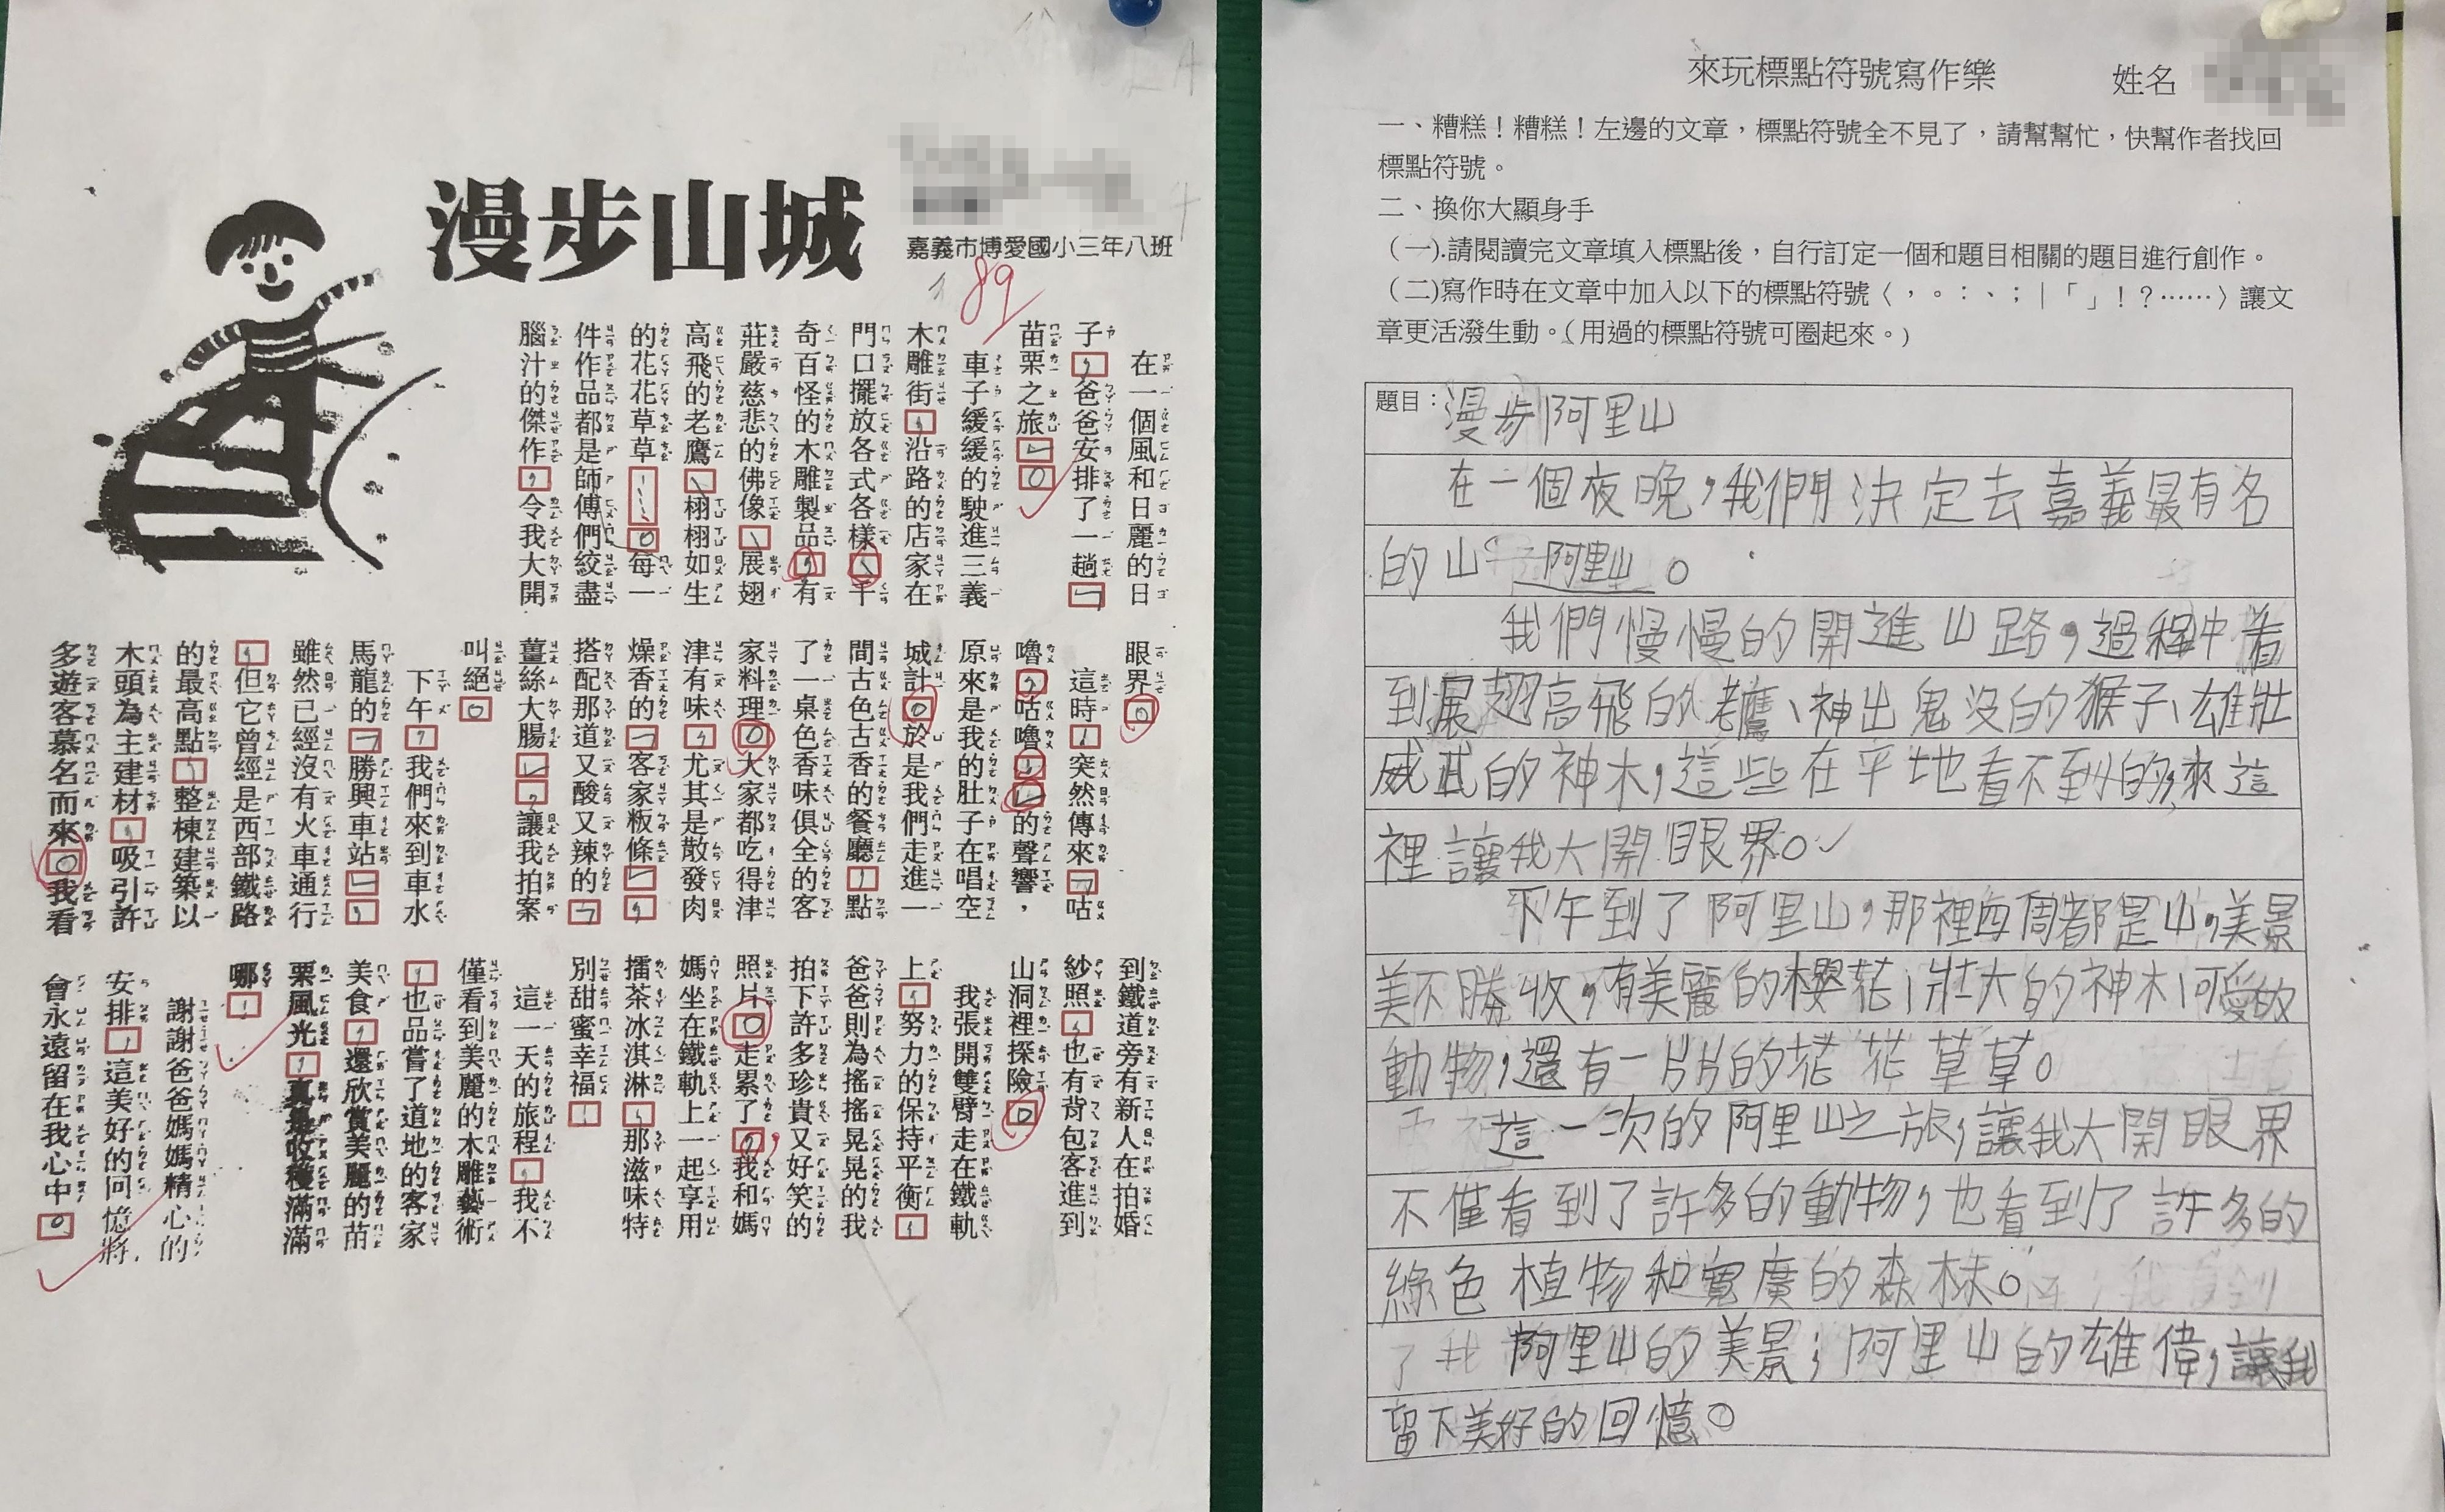 漫步山城
嘉義市博愛國小三年八班
89
在一個風和日麗的日
子，爸爸安排了一趟「
苗栗之旅」。
車子緩緩的駛進三義
木雕街，沿路的店家在
門口擺放各式各樣、千
奇百怪的木雕製品，有
莊嚴慈悲的佛像、展翅
高飛的老鷹、栩栩如生
的花花草草……。每一
件作品都是師傅們絞盡
腦汁的傑作，令我大開
眼界。
這時，突然傳來「咕
嚕，咕嚕，」的聲響，
原來是我的肚子在唱空
城計。於是我們走進一
間古色古香的餐廳，點
了一桌色香味俱全的客
家料理。大家都吃得津
津有味，尤其是散發肉
燥香的「客家粄條」，
搭配那道又酸又辣的「
薑絲大腸」，讓我拍案
叫絕。
下午，我們來到車水
馬龍的「勝興車站」，
雖然已經沒有火車通行
，但它曾經是西部鐵路
的最高點，整棟建築以
木頭為主建材，吸引許
多遊客慕名而來。我看
到鐵道旁有新人在拍婚
紗照，也有背包客進到
山洞裡探險。
我張開雙臂走在鐵軌
上，努力的保持平衡，
爸爸則為搖搖晃晃的我
拍下許多珍貴又好笑的
照片。走累了，我和媽
媽坐在鐵軌上一起享用
擂茶冰淇淋，那滋味特
別甜蜜幸福！
這一天的旅程，我不
僅看到美麗的木雕藝術
，也品嘗了道地的客家
美食，還欣賞美麗的苗
栗風光，真是收穫滿滿
哪！
謝謝爸爸媽媽精心的
安排，這美好的回憶將
會永遠留在我心中。
來玩標點符號寫作樂 姓名
一、糟糕！糟糕！左邊的文章，標點符號全不見了，請幫幫忙，快幫作者找回
標點符號。
二、換你大顯身手
（一).請閱讀完文章填入標點後，自行訂定一個和題目相關的題目進行創作。
（二)寫作時在文章中加入以下的標點符號〈，。：、；｜「」！？……〉讓文
章更活潑生動。（用過的標點符號可圈起來。)
題目：漫步阿里山
在一個夜晚，我們決定去嘉義最有名
的山 阿里山。
我們慢慢的開進山路，過程中看
到展翅高飛的老鷹、神出鬼沒的猴子、雄壯
威武的神木，這些在平地看不到的，來這
裡讓我大開眼界。
下午到了阿里山，那裡每周都是山，美景
美不勝收，有美麗的櫻花、壯大的神木、可愛的
動物，還有一片片的花花草草。
這一次的阿里山之旅，讓我大開眼界
不僅看到了許多的動物，也看到了許多的
綠色植物和寬廣的森林。
阿里山的美景；阿里山的雄偉，讓我
留下美好的回憶。